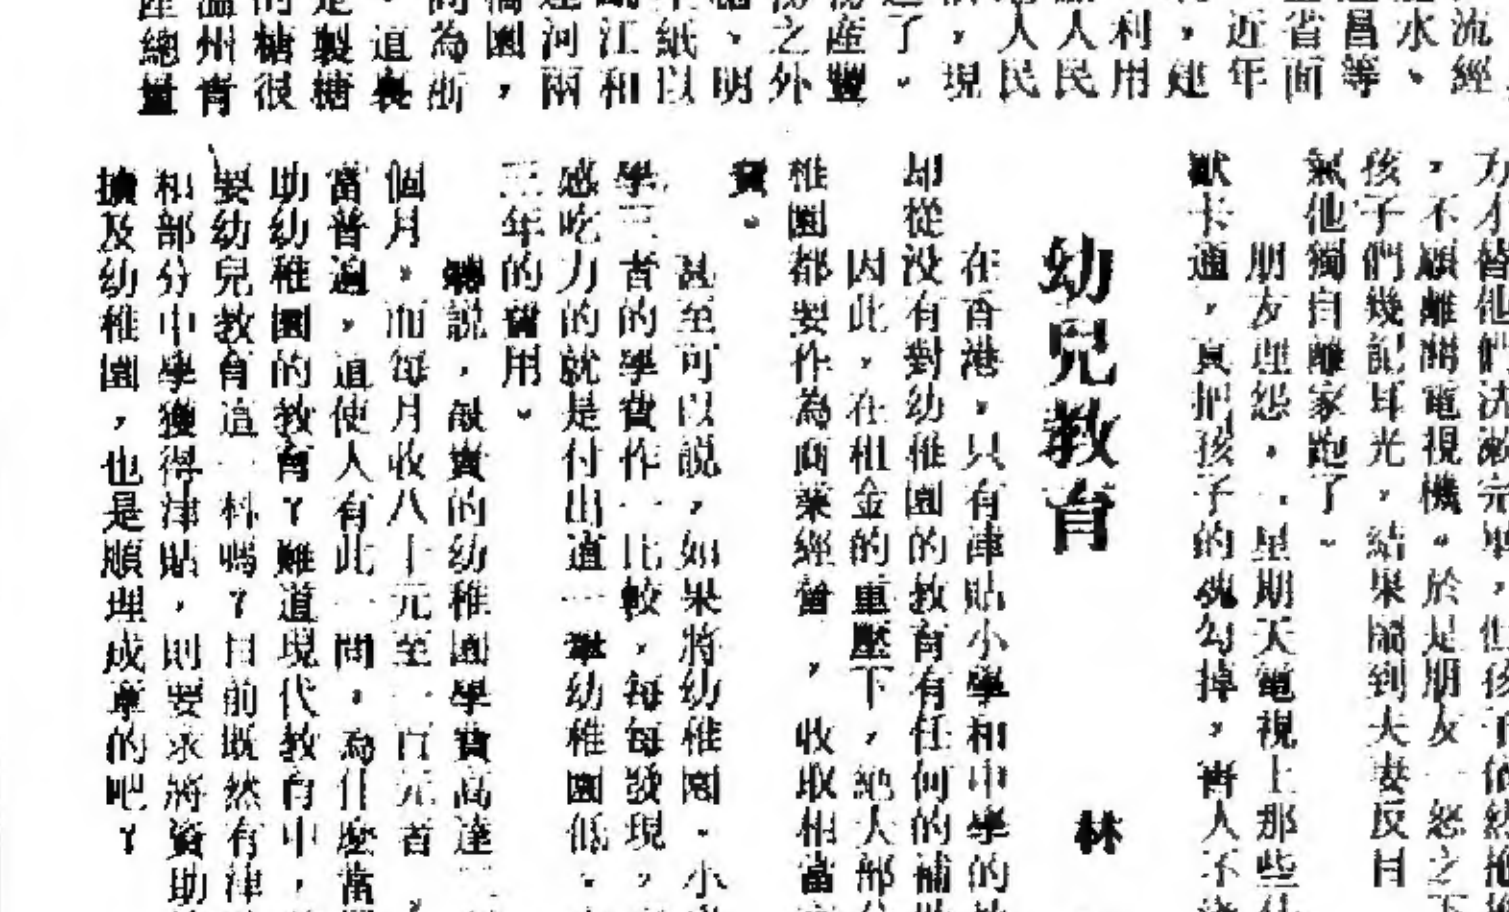 流經
水、
昌等
省面
近年
，建
利用
人民
人民
，現
了。
產豐
之外
、明
紙以
江和
河兩
園，
為浙
道裏
製糖
糖很
州青
總量
，不願離開電視機。於是朋友一怒之下
孩子們幾記耳光，結果鬧到夫妻反目
氣他獨自離家跑了。
朋友埋怨，星期天電視上那些
歡卡通，真把孩子的魂勾掉，害人不淺
幼兒教育
林
在香港，只有津貼小學和中學的
却從沒有對幼稚園的教育有任何的補
因此，在租金的重壓下，絕大部
稚園都要作為商業經營，收取相當
費。
甚至可以說，如果將幼稚園、小
學三者的學費作一比較，每每發現，
感吃力的就是付出這一筆幼稚園低、
三年的費用。
說，最貴的幼稚園學費高達二
個月，而每月收八十元至一百元者，
當普遍，這使人有此一問，為什麼當
助幼稚園的教育？難道現代教育中，
要幼兒教育這一科嗎？目前既然有津
和部分中學獲得津貼，則要求將資助
擴及幼稚園，也是順理成章的吧？